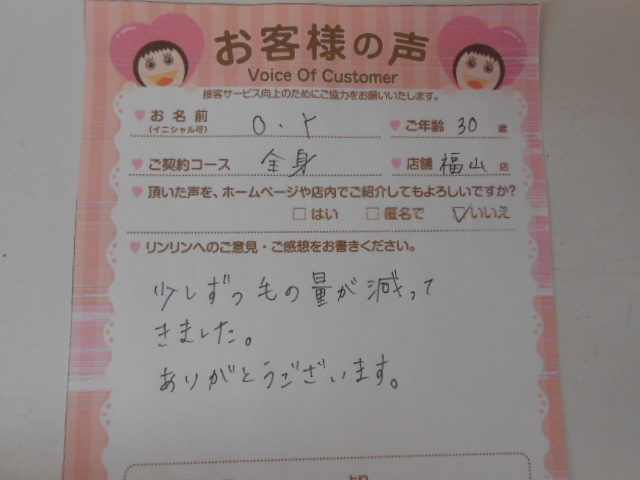 お客様の声
Voice Of Customer
接客サービス向上のためにご協力をお願いいたします。
お名前 O.Y ご年齢 30 歳
(イニシャル可)
ご契約コース 全身 店舗 福山 店
頂いた声を、ホームページや店内でご紹介してもよろしいですか?
□はい □匿名で ☑いいえ
リンリンへのご意見・ご感想をお書きください。
少しずつ毛の量が減って
きました。
ありがとうございます。
より